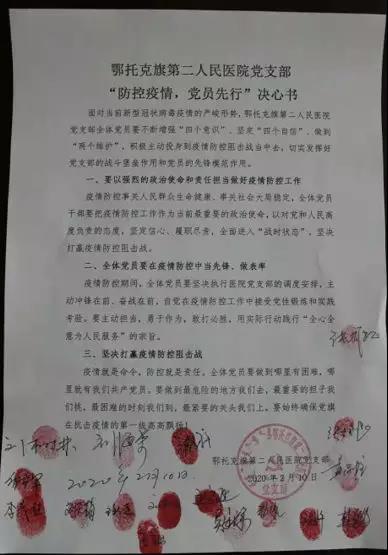 鄂托克旗第二人民医院党支部
“防控疫情，党员先行”决心书
面对当前新型冠状病毒疫情的严峻形势，鄂托克旗第二人民医院
党支部全体党员要不断增强“四个意识”、坚定“四个自信”、做到
“两个维护”，积极主动投身到疫情防控阻击战当中去，切实发挥好
党支部的战斗堡垒作用和党员的先锋模范作用。
一、要以强烈的政治使命和责任担当做好疫情防控工作
疫情防控事关人民群众生命健康、事关社会大局稳定，全体党员
干部要把疫情防控工作作为当前最重要的政治使命，以对党和人民高
度负责的态度，坚定信心、履职尽责，全面进入“战时状态”，坚决
打赢疫情防控阻击战。
二、全体党员要在疫情防控中当先锋、做表率
疫情防控期间，全体党员要坚决执行医院党支部的调度安排，主
动冲锋在前、奋战在前，自觉在疫情防控工作中接受党性锻炼和实践
考验。要主动担当，勇于作为，敢打必胜，用实际行动践行“全心全
意为人民服务”的宗旨。
三、坚决打赢疫情防控阻击战
疫情就是命令，防控就是责任。全体党员要做到哪里有困难，哪
里就有我们共产党员。要做到最危险的地方我们去，最重要的担子我
们挑，最困难的时刻我们到，最紧要的关头我们上。要始终确保党旗
在抗击疫情的第一线高高飘扬！
鄂托克旗第二人民医院党支部
2020年2月10日
2020年2月10日
党支部